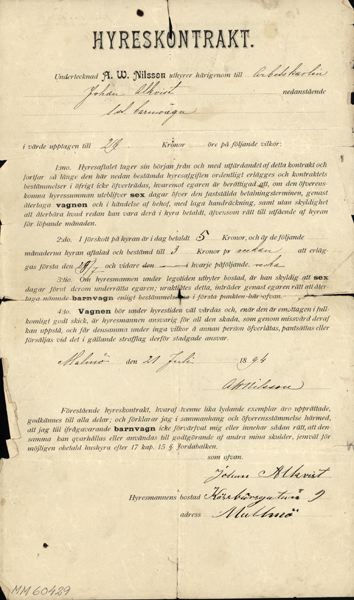 HYRESKONTRAKT.
Undertecknad A. W. Nilsson uthyrer härigenom till Arbetskarlen
Johan Alkvist nedanstående
barnvagn
i värde upptagen till 28 Kronor öre på följande vilkor:
1:mo. Hyresaftalet tager sin början från och med utfärdandet af detta kontrakt och
fortfar så länge den här nedan bestämda hyresafgiften ordentligt erlägges och kontraktets
bestämmelser i öfrigt icke öfverträdas, hvaremot egaren är berättigad att, om den öfverens-
komna hyressumman uteblifver sex dagar öfver den fastställda betalningsterminen, genast
återtaga vagnen och i händelse af behof, med laga handräckning, samt utan skyldighet
att återbära hvad redan kan vara derå i hyra betaldt, äfvensom rätt till utfående af hyran
för löpande månaden.
2:do. I förskott på hyran är i dag betaldt 5 Kronor, och är de följande
månadernas hyran aftalad och bestämd till 3 Kronor pr veckan att erläg-
gas första den 28/7 och vidare den — hvarje påföljande vecka
3:tio. Om hyresmannen under legotiden utbyter bostad, är han skyldig att sex
dagar förut derom underrätta egaren; uraktlåtes detta, inträder genast egarens rätt att åter-
taga nämnde barnvagn enligt bestämmelserna i första punkten här ofvan.
4:to. Vagnen bör under hyrestiden väl vårdas och, enär den är emottagen i full-
komligt godt skick, är hyresmannen ansvarig för all den skada, som genom missvård deraf
kan uppstå, och får densamma under inga vilkor å annan person öfverlåtas, pantsättas eller
försäljas vid det i gällande strafflag derför stadgade ansvar.
Malmö den 21 Juli 1894
A W Nilsson
Förestående hyreskontrakt, hvaraf tvenne lika lydande exemplar äro upprättade,
godkännes till alla delar; och förklarar jag i sammanhang och öfverensstämmelse härmed,
att jag till ifrågavarande barnvagn icke förvärfvat mig eller innehar sådan rätt, att den
samma kan qvarhållas eller användas till godtgörande af andra mina skulder, jemväl för
möjligen obetald husshyra efter 17 kap. 15 § Jordabalken.
som ofvan.
Johan Alkvist
Hyresmannens bostad 9
adress Malmö
MM 60429